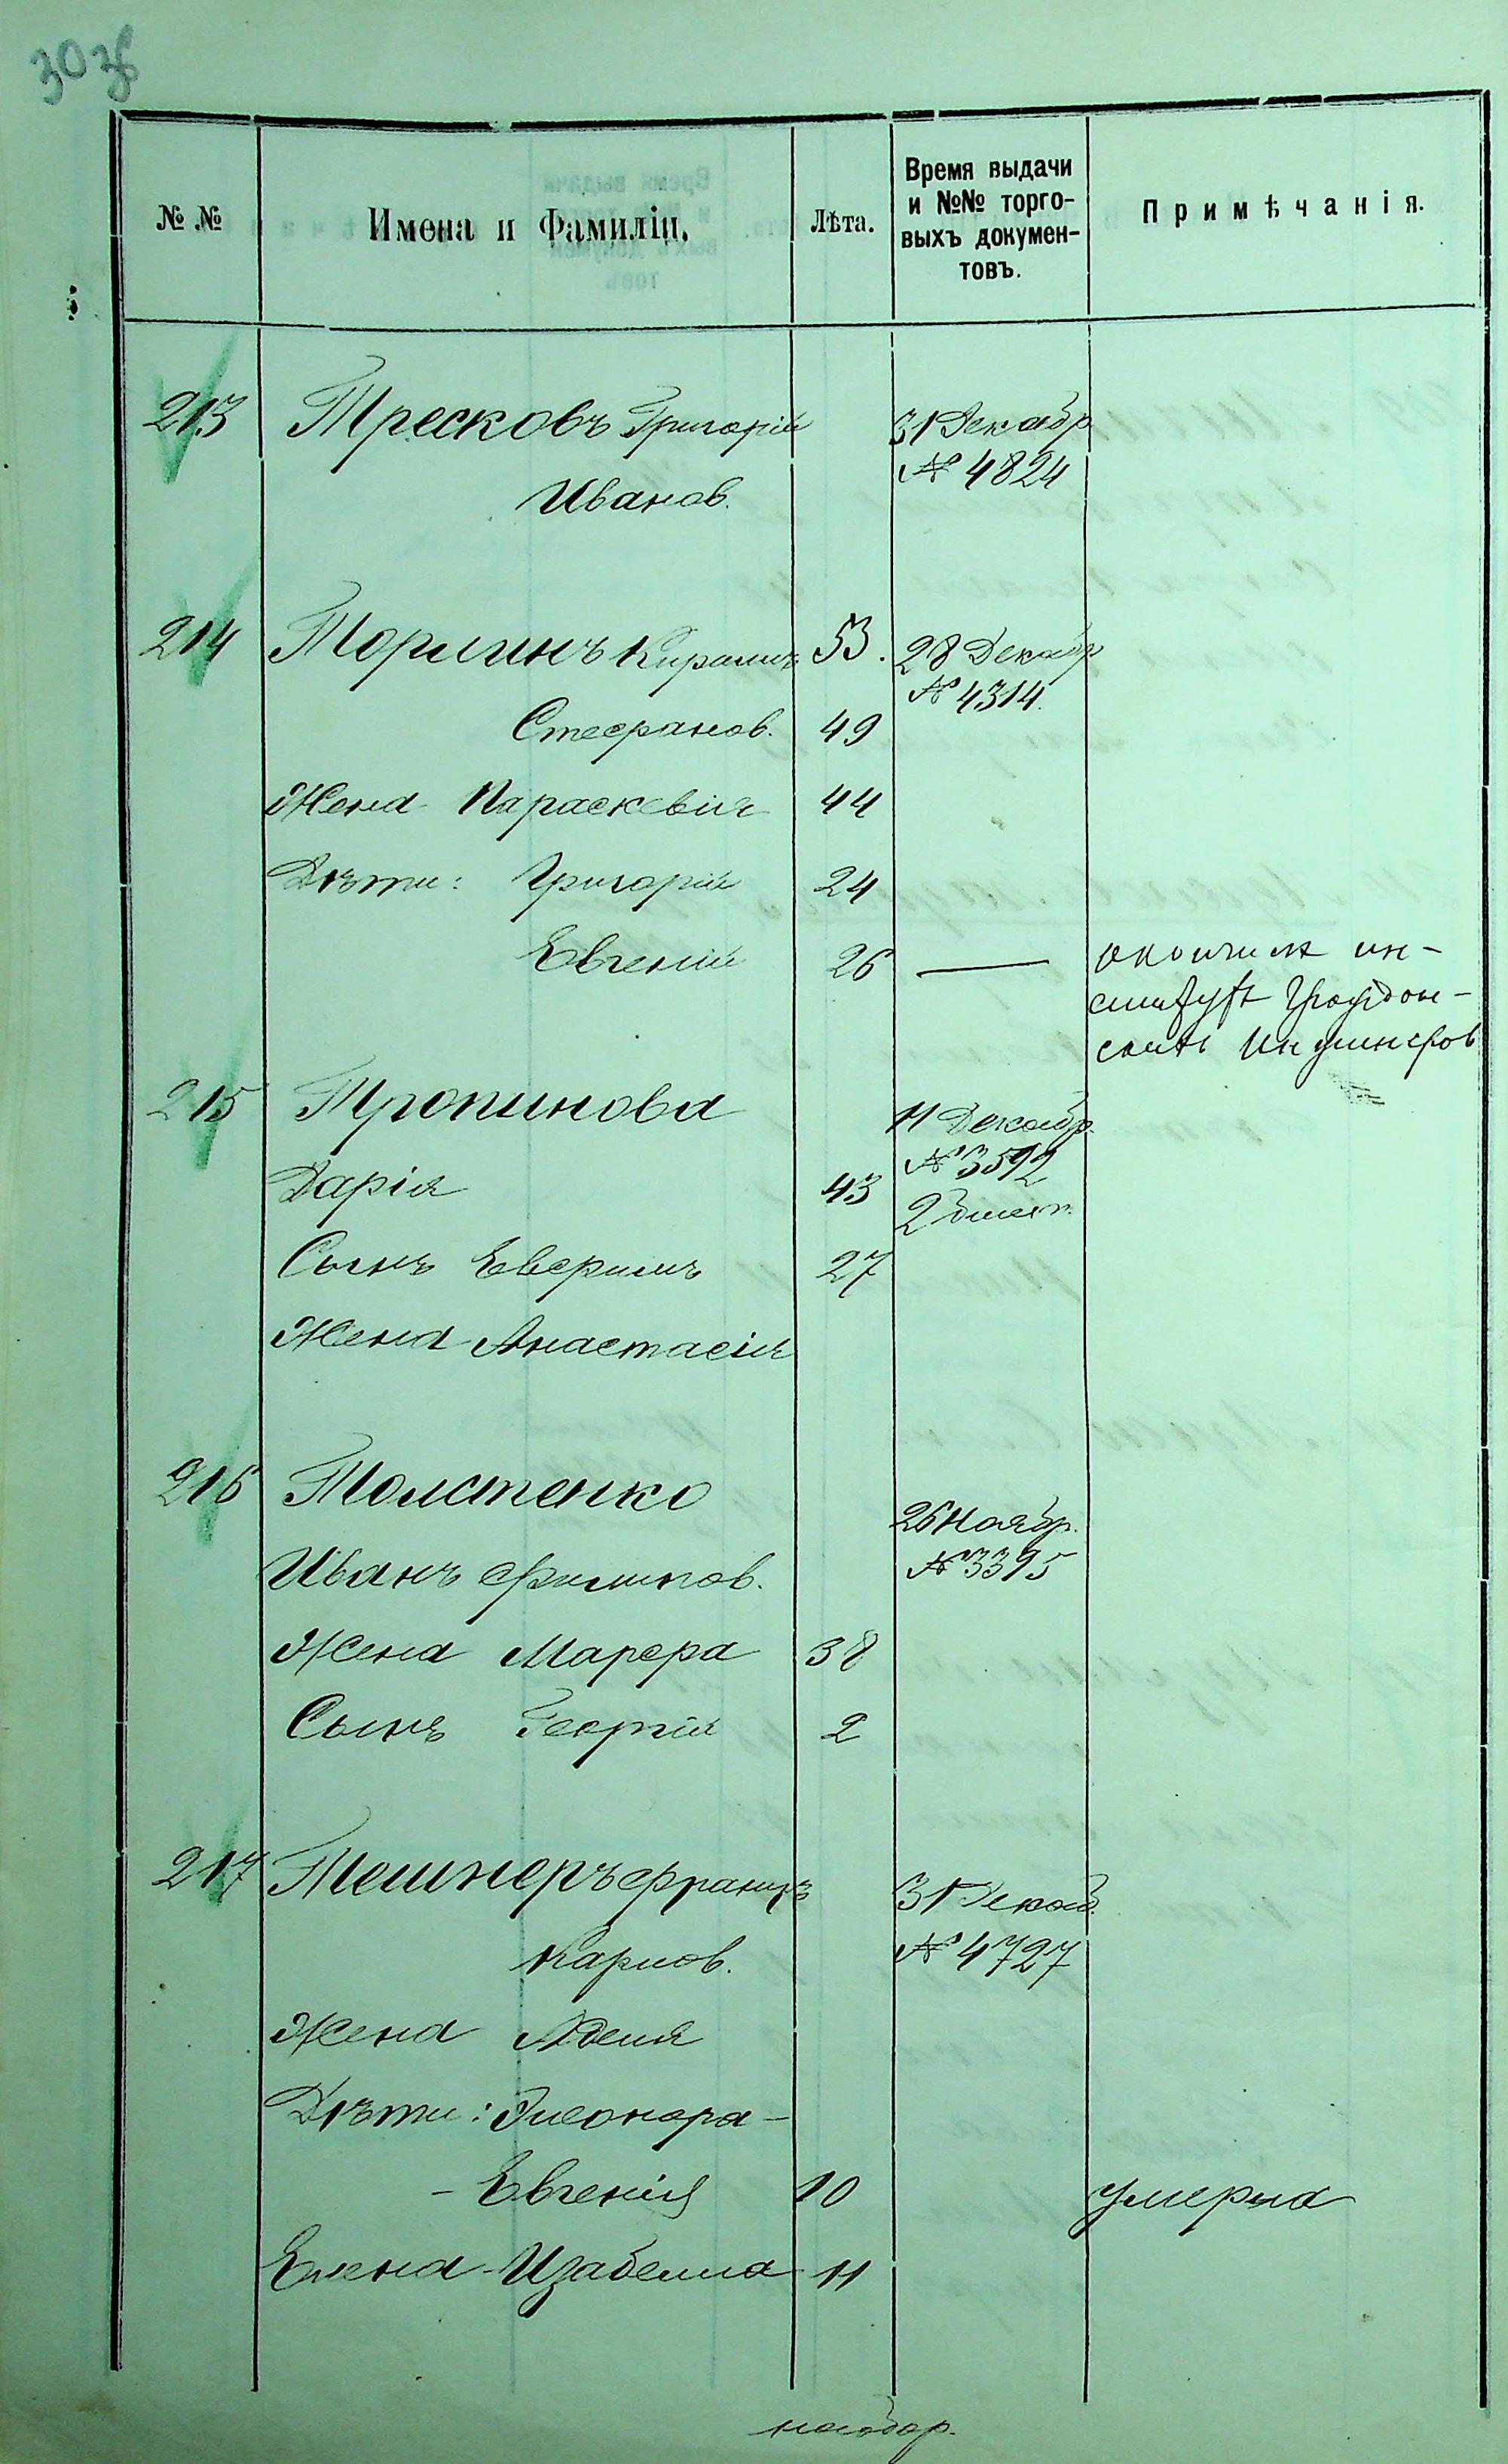 303б
№ №
Имена и Фамиліи.
Лѣта.
Время выдачи
и №№ торго-
выхъ докумен-
товъ.
Примѣчанія.
213 Тресковъ Григорій 31 Декабр
№ 4824
Иванов.
214 Торлинъ Кирилъ 53. 28 Декабр
№ 4314.
Стефанов. 49
Жена Параскевія 44
Дѣти: Григорій 24
Евгеній 26 — окончилъ ин-
ститутъ Граждан-
скихъ Инженеров
215 Тропинова 11 Декабр.
№ 3592
Дарія 43
2 билет.
Сынъ Евфимъ 27
Жена Анастасія
216 Толстенко
26 Ноябр.
Иванъ Филипов. № 3395
Жена Марфа 38
Сынъ Георгій 2
217 Тешнеръ Францъ 31 Декаб.
Карлов. № 4727
Жена Аделя
Дѣти: Элеонора -
- Евгенія 10 умерла
Елена-Изабелла 11